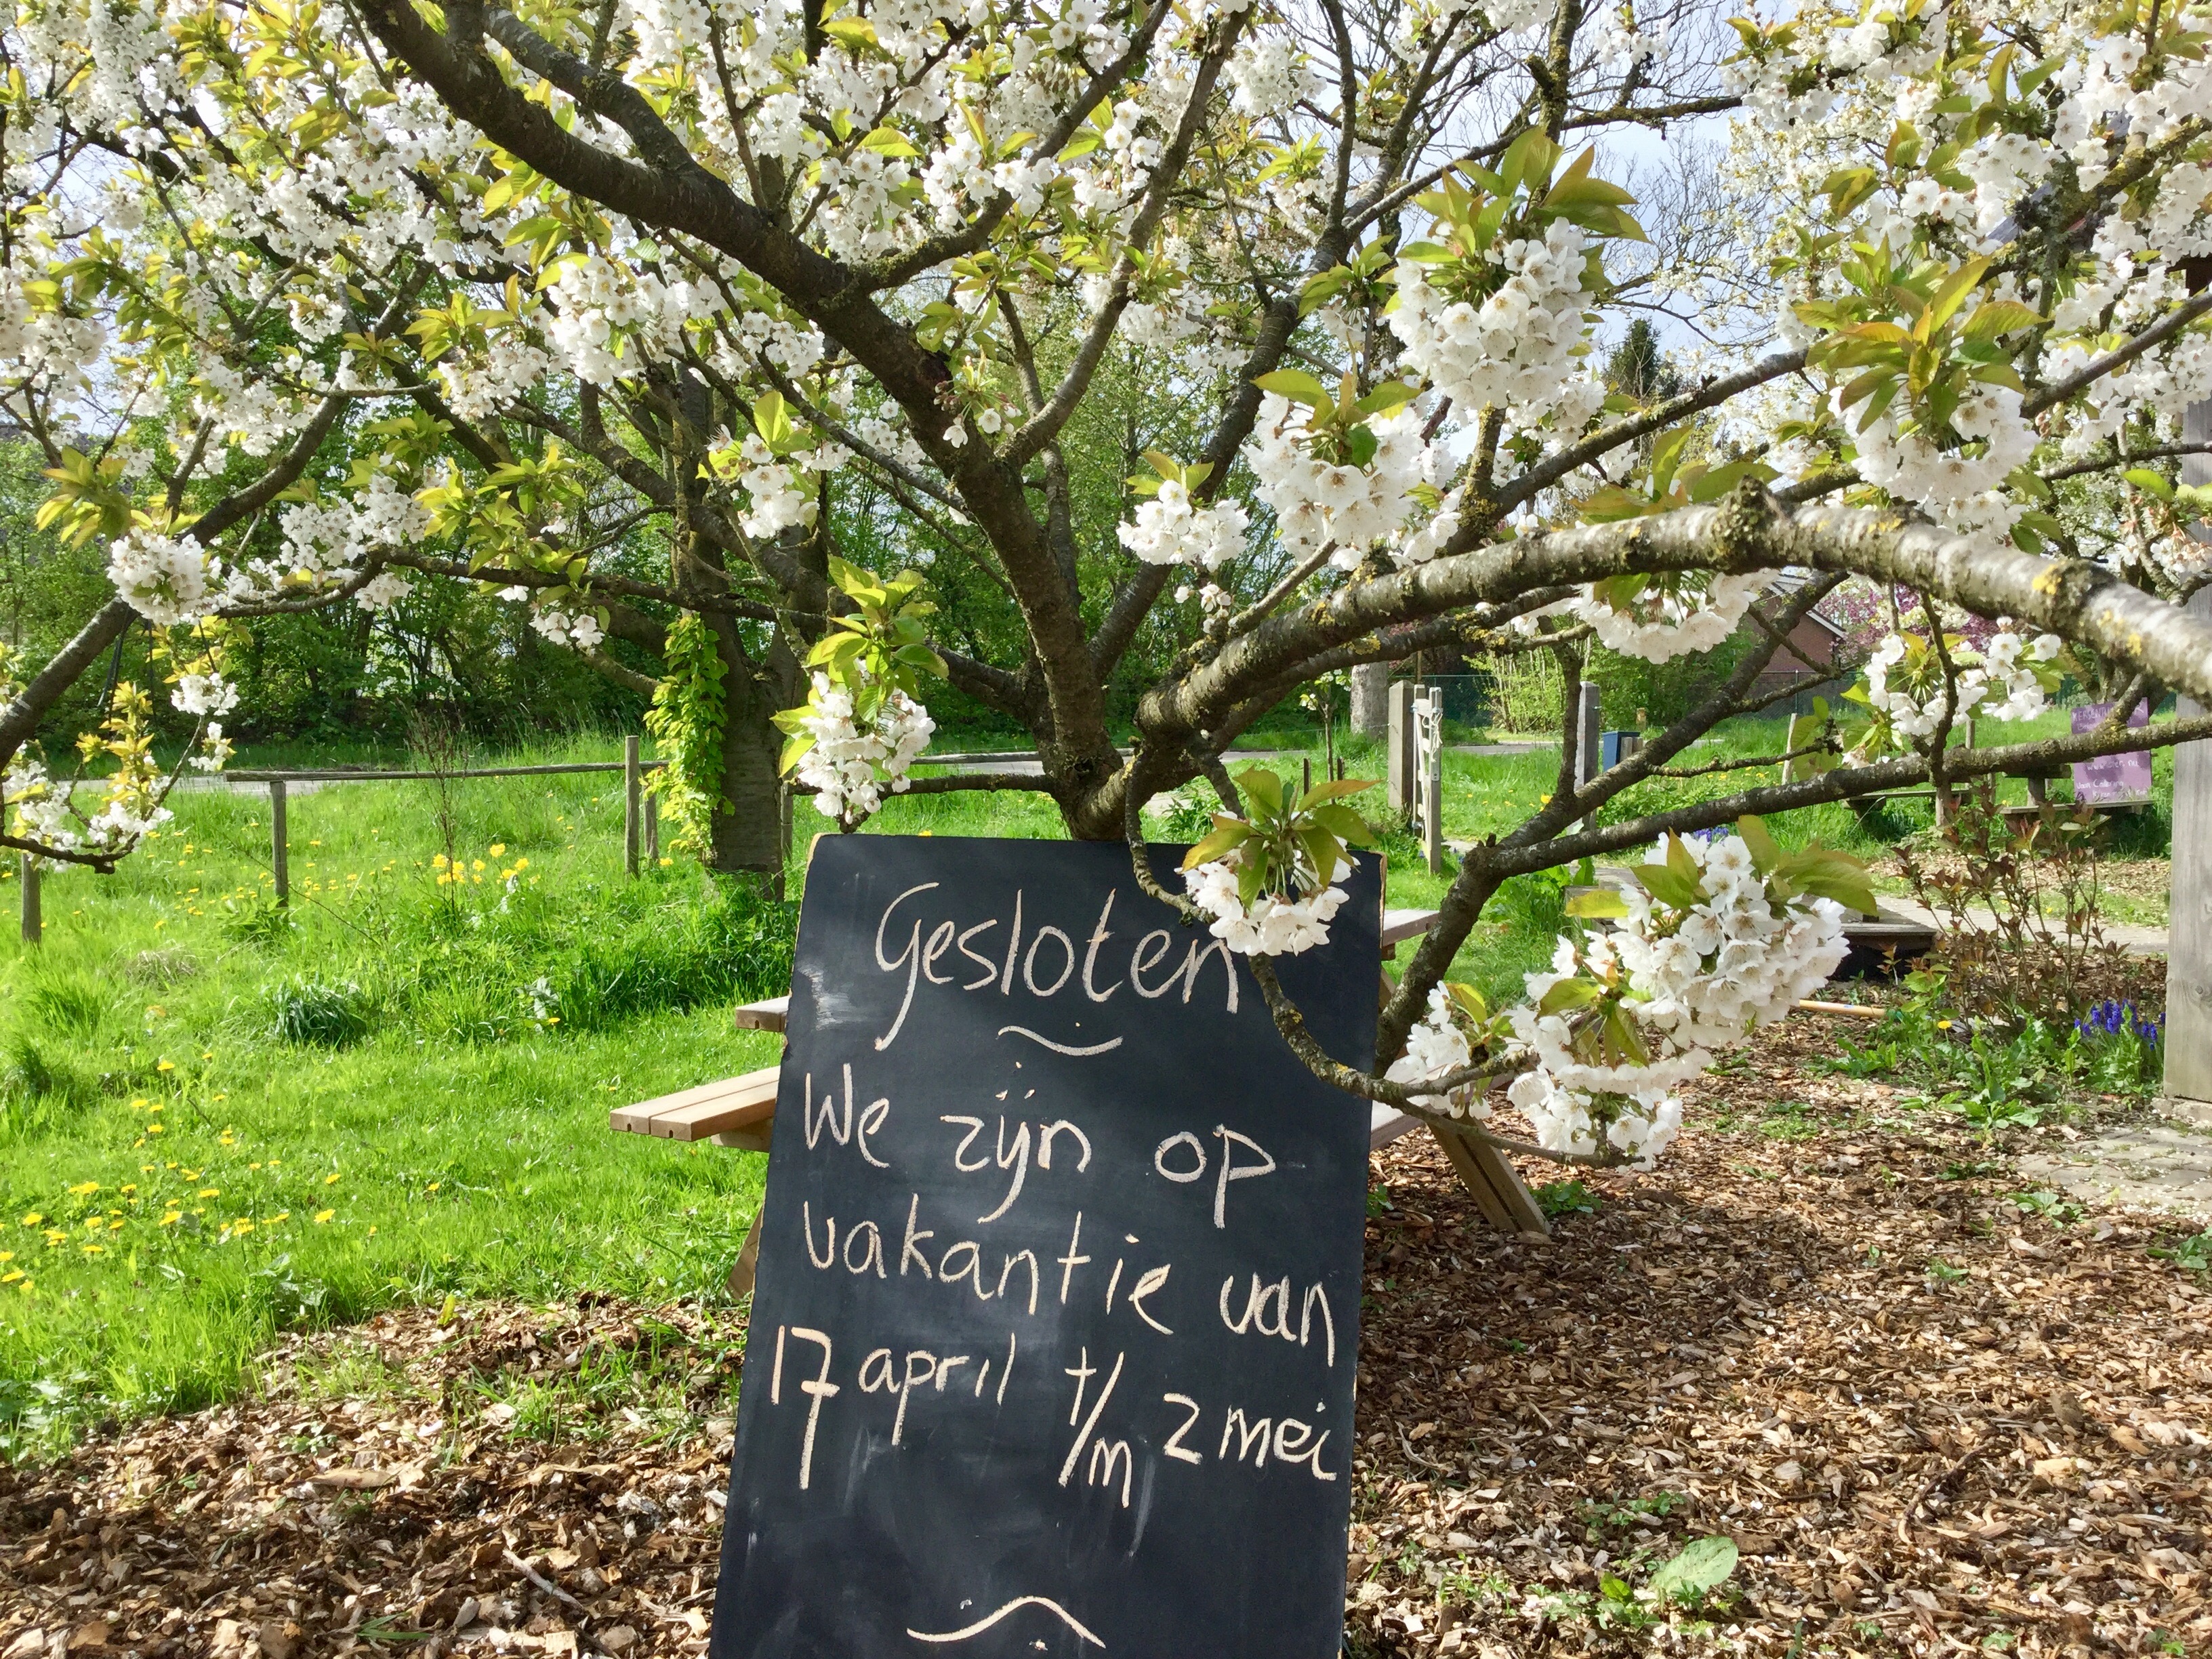 Gesloten
We zijn op
vakantie van
17 april t/m 2 mei